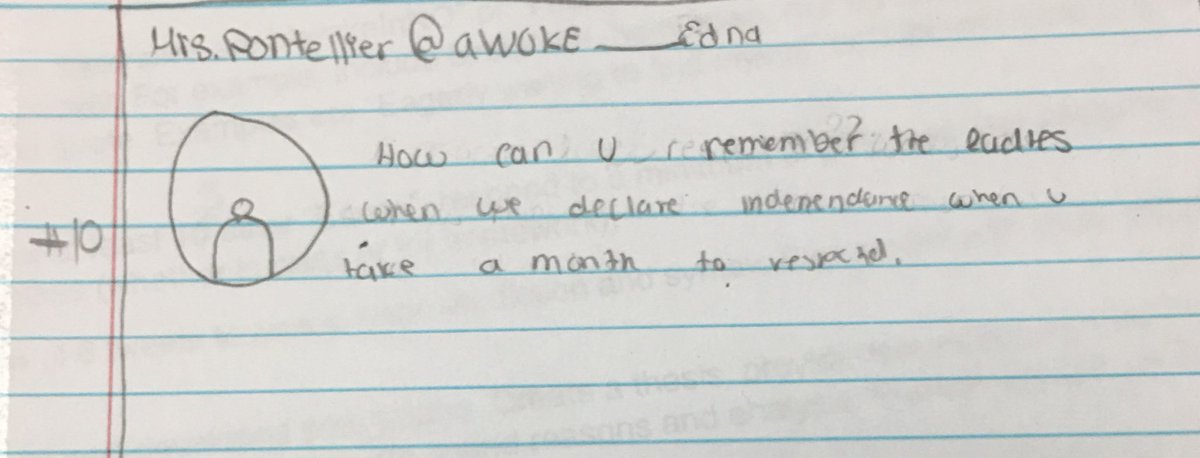 Mrs. Pontellier @awoke — Edna
How can u remember the ladies
#10
when we declare independence when u
take a month to respond.